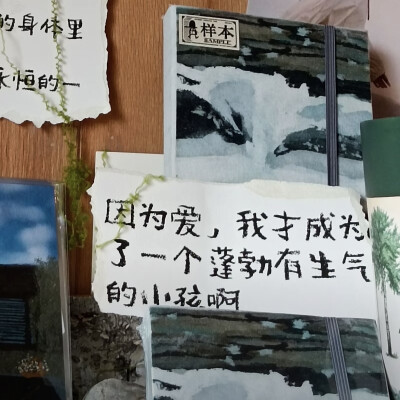 的身体里
永恒的一
样本
SAMPLE
因为爱，我才成为
了一个蓬勃有生气
的小孩啊